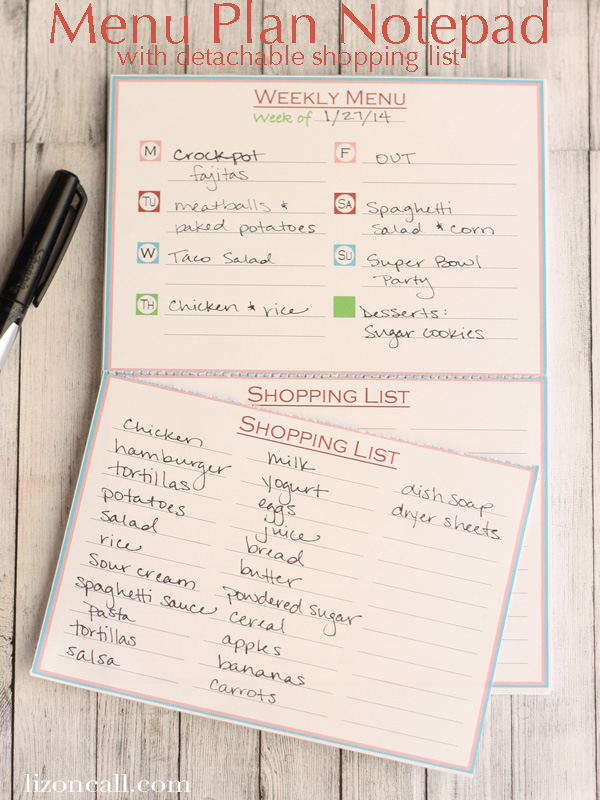 Menu Plan Notepad
with detachable shopping list
WEEKLY MENU
Week of 1/27/14
M Crockpot
fajitas
TU meatballs &
baked potatoes
W Taco Salad
TH Chicken & rice
F OUT
SA Spaghetti
Salad & corn
SU Super Bowl
Party
Desserts:
Sugar cookies
SHOPPING LIST
SHOPPING LIST
chicken
hamburger
tortillas
potatoes
salad
rice
sour cream
spaghetti sauce
pasta
tortillas
salsa
milk
yogurt
eggs
juice
bread
butter
powdered sugar
cereal
apples
bananas
carrots
dish soap
dryer sheets
lizoncall.com